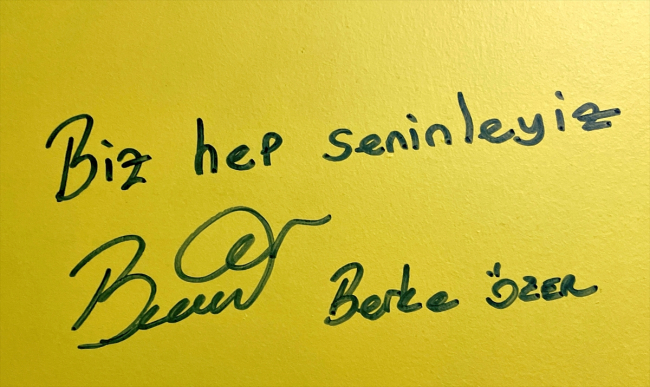 Biz hep seninleyiz
Berke ÖZER